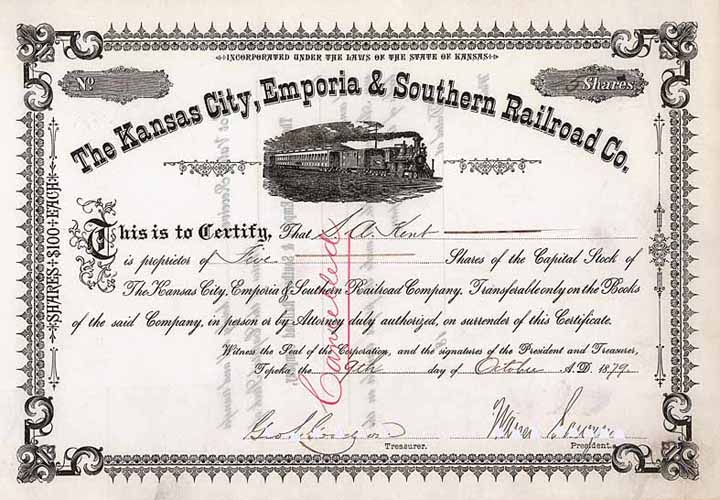 INCORPORATED UNDER THE LAWS OF THE STATE OF KANSAS
No
5 Shares
The Kansas City, Emporia & Southern Railroad Co.
SHARES $100 EACH
This is to Certify, That S. A. Kent
is proprietor of Five Shares of the Capital Stock of
The Kansas City, Emporia & Southern Railroad Company. Transferable only on the Books
of the said Company, in person or by Attorney duly authorized, on surrender of this Certificate.
Witness the Seal of the Corporation, and the signatures of the President and Treasurer,
Topeka, the 9th day of October A.D. 1879
Cancelled
Geo.
Treasurer.
President.